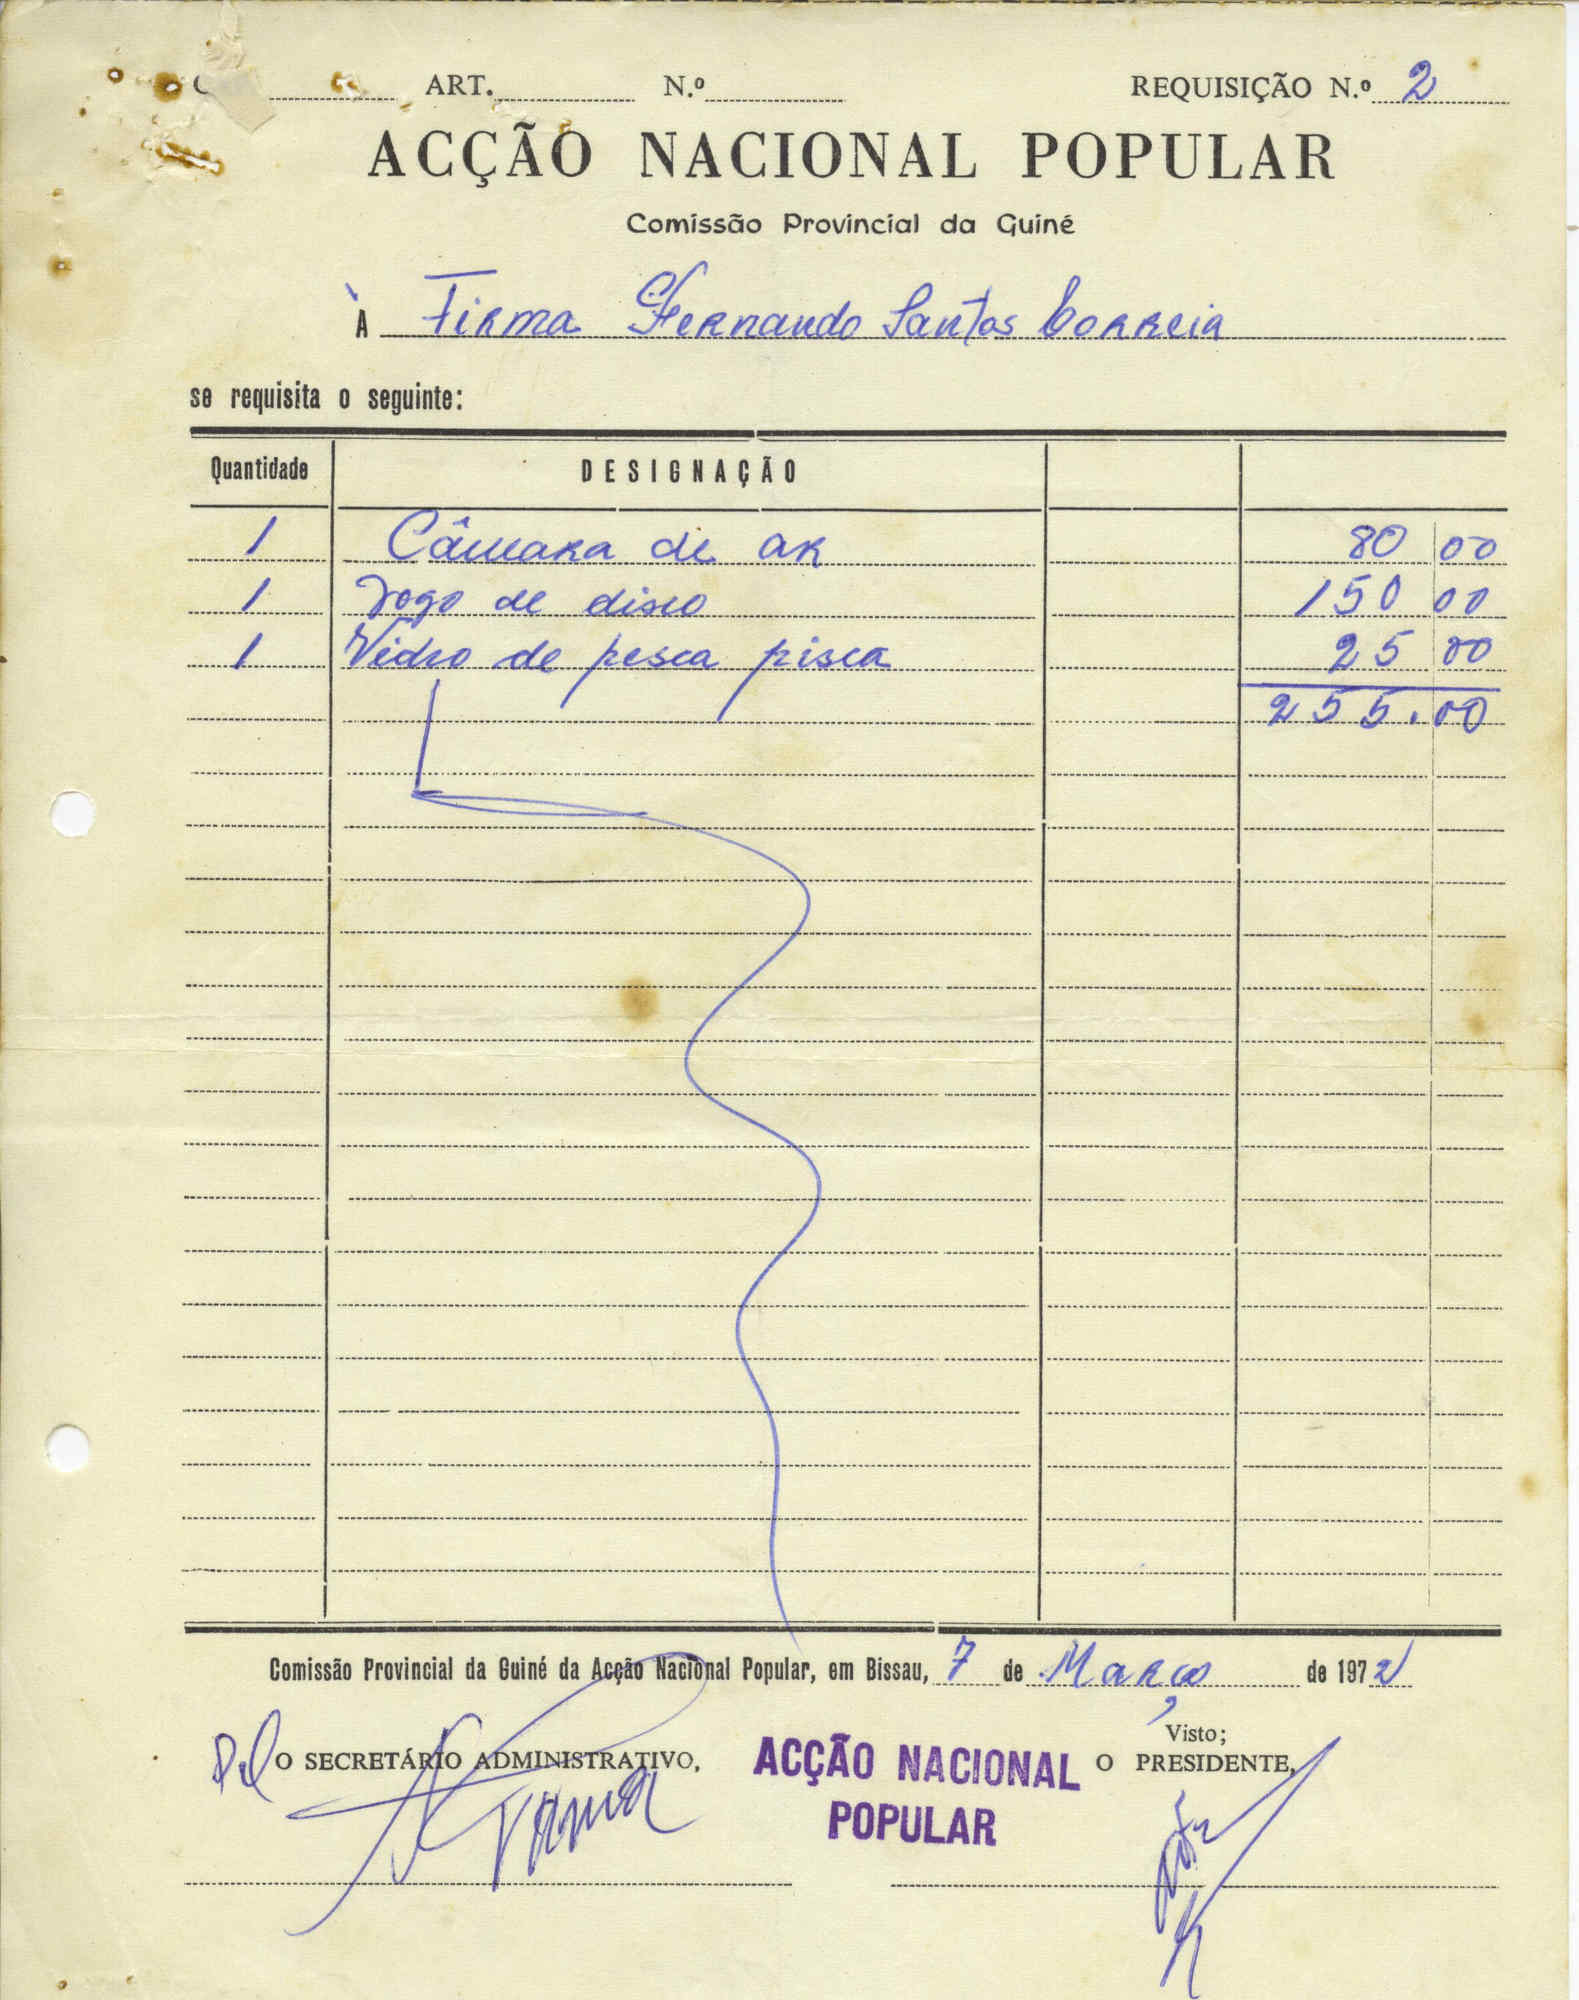 ART. N.º REQUISIÇÃO N.º 2
ACÇÃO NACIONAL POPULAR
Comissão Provincial da Guiné
À Firma Fernando Santos Correia
se requisita o seguinte:
Quantidade DESIGNAÇÃO
1 Câmara de ar 80 00
1 Jogo de disco 150 00
1 Vidro de pesca pisca 25 00
255.00
Comissão Provincial da Guiné da Acção Nacional Popular, em Bissau, 7 de Março de 1972
Visto;
Pel O SECRETÁRIO ADMINISTRATIVO, O PRESIDENTE,
ACÇÃO NACIONAL
POPULAR